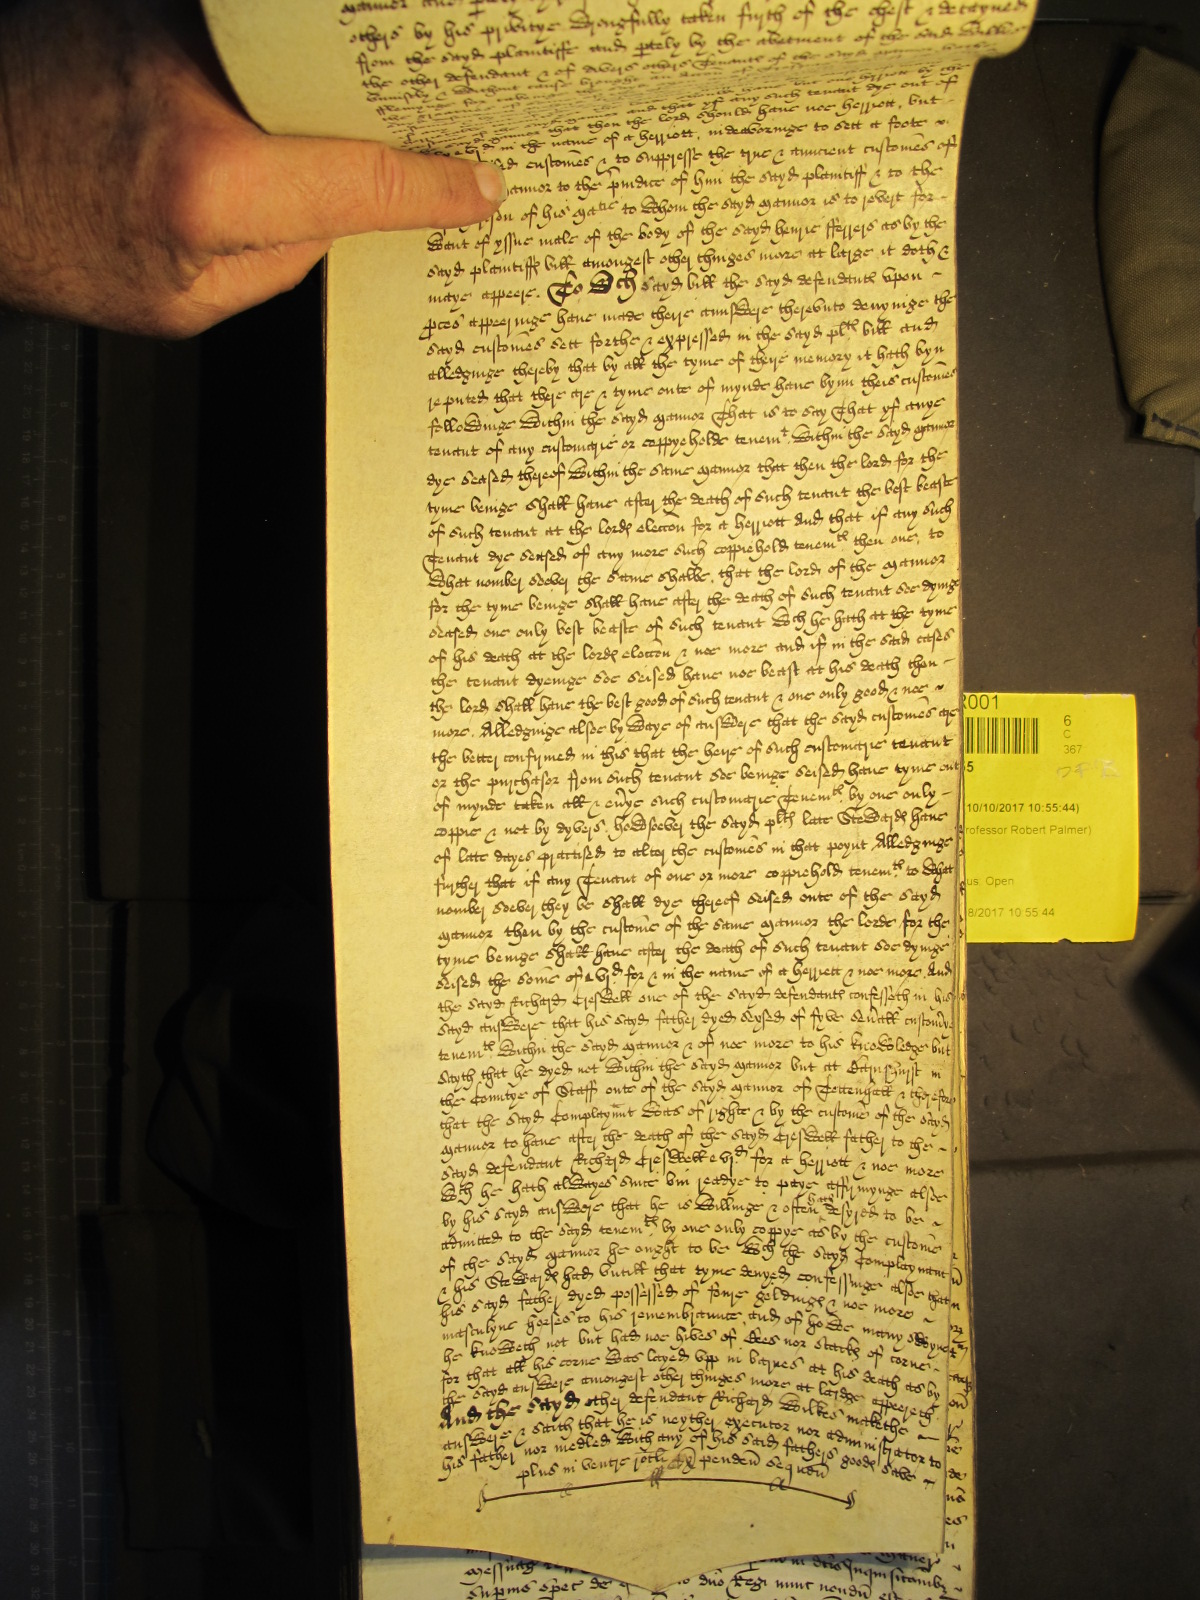 mannor and
others by his privitye wrongfully taken furth of the chest & detayned
from the sayd plaintiffe and ptely by the abetment of the said Wilkes
the other defendant & of divers others tenants of the sayd mannor
and that yf any such tenant dye out of
mannor that then the lord should have noe herriott, but
in the name of a herriott, indeavoringe to sett a foote
customes & to suppresse the true & auncient customes of
mannor to the piudice of him the sayd plaintiff & to the
of his matie to whom the sayd mannor is to revert for
want of yssue male of the body of the sayd henrie fferrers as by the
sayd plaintiffs bill amongest other thinges more at large it doth &
maye appeere. To wch sayd bill the sayd defendants upon
pces appeeringe have made theire answere therevnto denyinge the
sayd customes sett forthe & expressed in the sayd plts bill and
alledginge thereby that by all the tyme of theire memory it hath byn
reputed that there are & tyme oute of mynde have bynn theis customes
followinge within the sayd mannor That is to say That yf anye
tenant of any customarie or coppyeholde tenemt within the sayd mannor
dye seased thereof within the same mannor that then the lord for the
tyme beinge shall have after the death of such tenant the best beaste
of such tenant at the lords eleccon for a herriott And that if any such
Tenant dye seased of any more such coppiehold tenemts then one, to
what nomber soever the same shalbe, that the lord of the mannor
for the tyme beinge shall have after the death of such tenant soe dyinge
seased one only best beaste of such tenant wch he hath at the tyme
of his death at the lords eleccon & noe more and if in the said cases
the tenant dyeinge soe seised have noe beast at his death then
the lord shall have the best good of such tenant & one only good & noe
more. Alledginge alsoe by waye of answere that the sayd customes are
the better confirmed in this that the heire of such customarie tenant
or the purchasor from such tenant soe beinge seised have tyme out
of mynde taken all & evye such customarie Tenemts by one only
coppie & not by dyvers, howsoever the sayd plts late Stewards have
of late dayes practised to alter the customes in that poynt Alledginge
further that if any Tenant of one or more coppiehold tenemts to what
nomber soever they be shall dye thereof seised oute of the sayd
mannor then by the custome of the same mannor the lorde for the
tyme beinge shall have after the death of such tenant soe dyinge
seised the some of vid for & in the name of a herriott & noe more And
the sayd Richard Creswell one of the sayd defendants confesseth in his
sayd answere that his sayd father dyed seysed of fyve sevall custom
tenemts within the sayd mannor & of noe more to his knowledge but
sayth that he dyed not within the sayd mannor but at Barnhurst in
the Comitye of Staff oute of the sayd mannor of Tettenhall & therefore
that the sayd Complaynant was of righte & by the custome of the sayd
mannor to have after the death of the sayd Creswell father to the
sayd defendant Richard Creswell vid for a herriott & noe more
wch he hath alwayes since bin readye to paye affirmynge alsoe
by his sayd answere that he is willinge & often hath desyred to be
admitted to the sayd tenemts by one only coppye as by the custome
of the sayd mannor he ought to be wch the sayd Complaynant
& his Stewards had vntill that tyme denyed confessinge alsoe that
his sayd father dyed possessed of fowre geldings & noe more
masculyne horses to his remembrance and of howe many swyne
he knoweth not but had noe hives of Bees nor stacks of corne
for that all his corne was layed vpp in barnes at his death as by
the sayd answere amongest other thinges more at lardge appeereth
And the sayd other defendant Richard Wilkes makethe
answere & saith that he is neyther executor nor administrator to
his father nor medled with any of his said fathers goods save
plus in ventre rotli penden sequen
(10/10/2017 10:55:44)
rofessor Robert Palmer)
us: Open
8/2017 10:55:44
R001
6
C
367